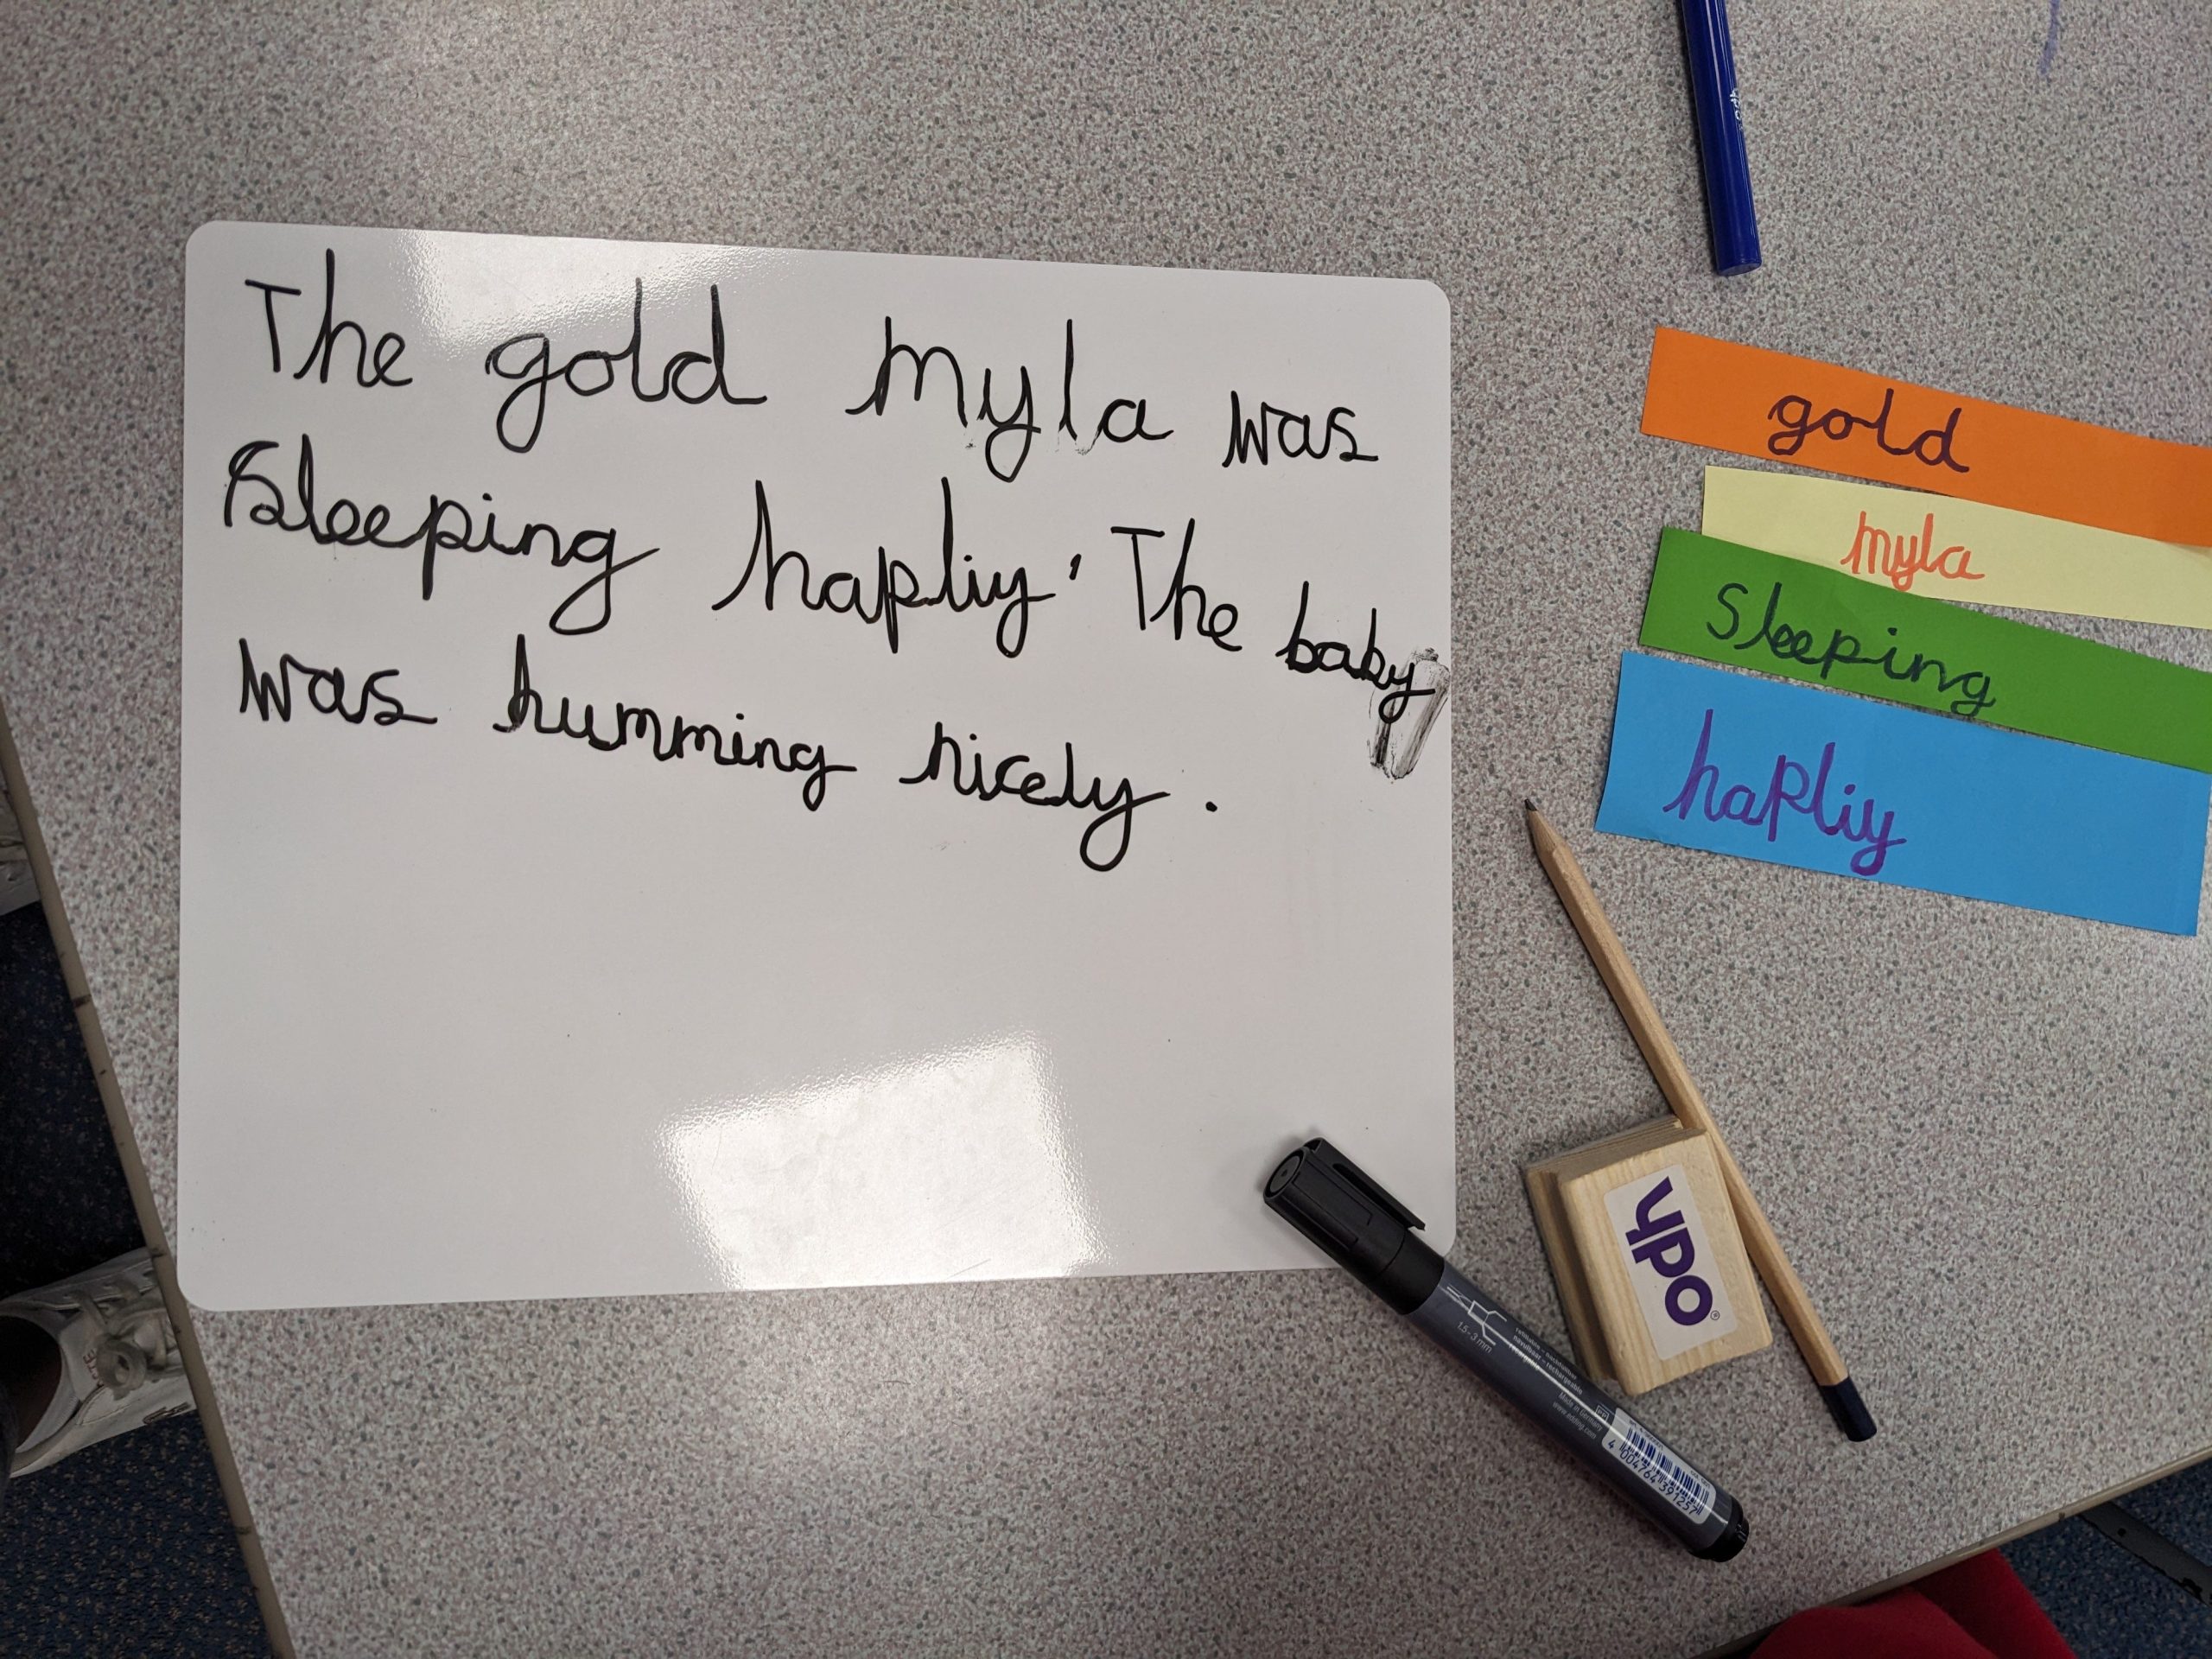 The gold myla was
Sleeping hapliy. The baby
was humming nicely.
gold
myla
Sleeping
hapliy
ypo
1.5-3 mm
4 004764 391257